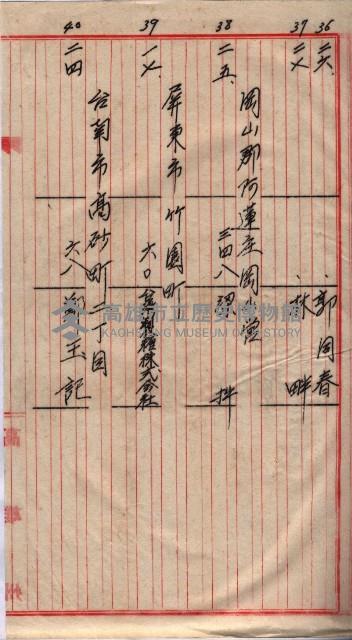 36 二六 〃 郭同春
37 二七 〃 林畔
38 二五 岡山郡阿蓮庄岡營 三四八
39 一七 屏東市竹園町 六〇 株式会社
40 二四 台南市高砂町一丁目 六八 王記
高雄市立歷史博物館
KAOHSIUNG MUSEUM OF HISTORY
高雄州